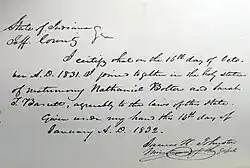 State of Indiana
Jeff County
I certify that on the 15th day of Octo-
ber A.D. 1831. I joined together in the holy state
of matrimony Nathaniel Bolter and Sarah
T. Barrett, agreeably to the laws of this state.
Given under my hand the 15th day of
January A.D. 1832.
James H. Johnston